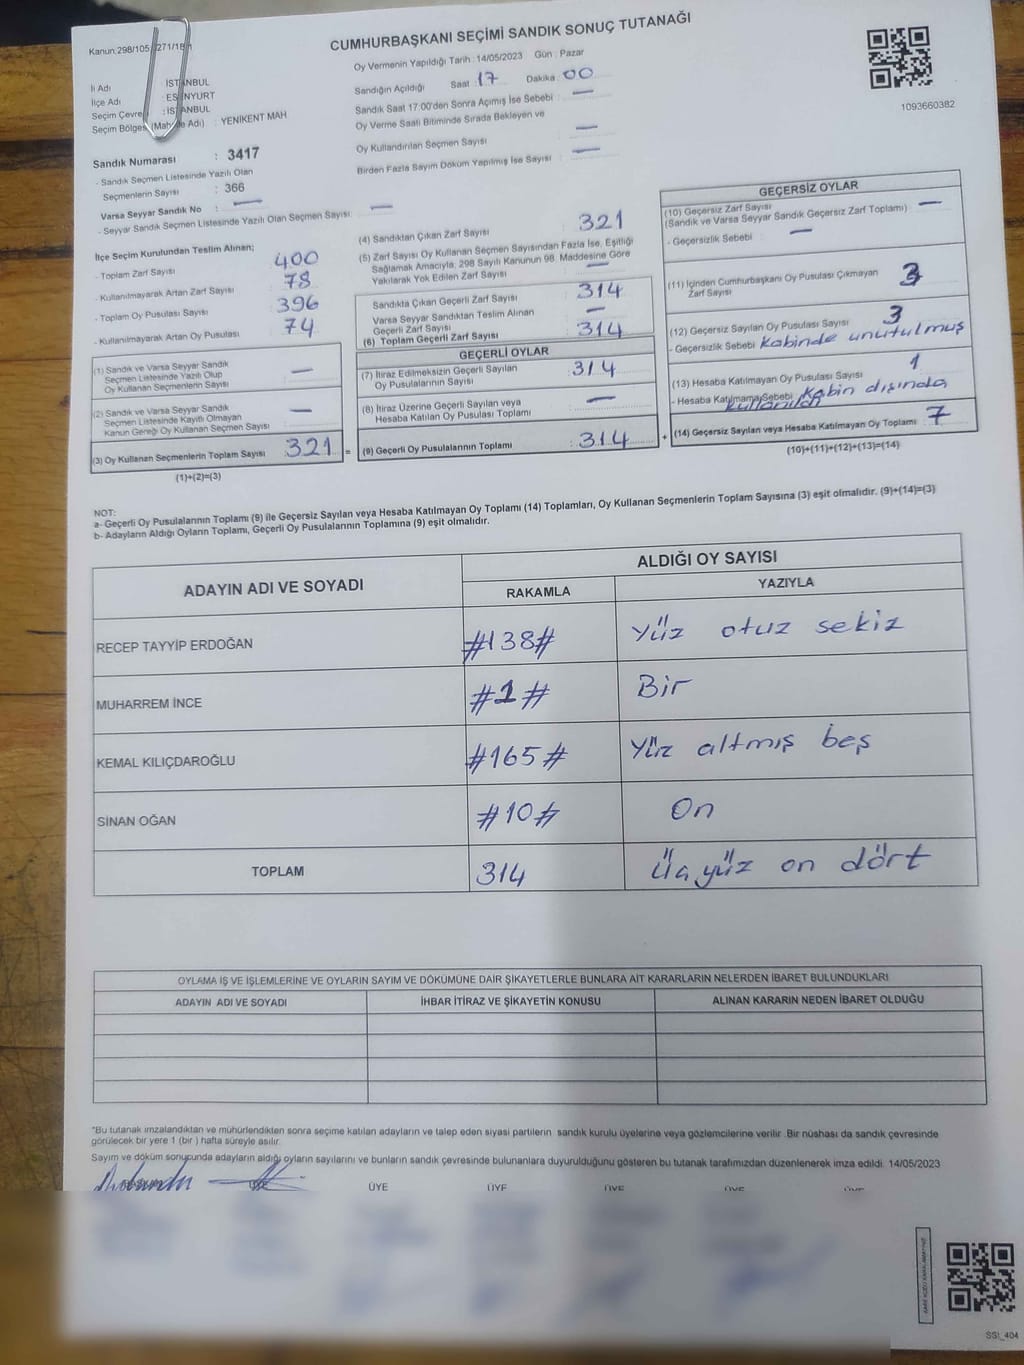 Kanun:298/105,271/18
CUMHURBAŞKANI SEÇİMİ SANDIK SONUÇ TUTANAĞI
Oy Vermenin Yapıldığı Tarih : 14/05/2023 Gün : Pazar
İli Adı : İSTANBUL
İlçe Adı : ESENYURT
Seçim Çevresi : İSTANBUL
Seçim Bölgesi (Mahalle Adı) : YENİKENT MAH
Sandık Numarası : 3417
- Sandık Seçmen Listesinde Yazılı Olan
Seçmenlerin Sayısı : 366
Varsa Seyyar Sandık No : —
- Seyyar Sandık Seçmen Listesinde Yazılı Olan Seçmen Sayısı: —
Sandığın Açıldığı Saat : 17 Dakika : 00
Sandık Saat 17:00'den Sonra Açımış İse Sebebi : —
Oy Verme Saati Bitiminde Sırada Bekleyen ve
Oy Kullandırılan Seçmen Sayısı : —
Birden Fazla Sayım Döküm Yapılmış İse Sayısı : —
1093660382
İlçe Seçim Kurulundan Teslim Alınan;
- Toplam Zarf Sayısı : 400
- Kullanılmayarak Artan Zarf Sayısı : 78
- Toplam Oy Pusulası Sayısı : 396
- Kullanılmayarak Artan Oy Pusulası : 74
(1) Sandık ve Varsa Seyyar Sandık
Seçmen Listesinde Yazılı Olup
Oy Kullanan Seçmenlerin Sayısı : —
(2) Sandık ve Varsa Seyyar Sandık
Seçmen Listesinde Kayıtlı Olmayan
Kanun Gereği Oy Kullanan Seçmen Sayısı : —
(3) Oy Kullanan Seçmenlerin Toplam Sayısı : 321 =
(1)+(2)=(3)
(4) Sandıktan Çıkan Zarf Sayısı : 321
(5) Zarf Sayısı Oy Kullanan Seçmen Sayısından Fazla İse, Eşitliği
Sağlamak Amacıyla, 298 Sayılı Kanunun 98. Maddesine Göre
Yakılarak Yok Edilen Zarf Sayısı : —
Sandıkta Çıkan Geçerli Zarf Sayısı : 314
Varsa Seyyar Sandıktan Teslim Alınan
Geçerli Zarf Sayısı : —
(6) Toplam Geçerli Zarf Sayısı : 314
GEÇERLİ OYLAR
(7) İtiraz Edilmeksizin Geçerli Sayılan
Oy Pusulalarının Sayısı : 314
(8) İtiraz Üzerine Geçerli Sayılan veya
Hesaba Katılan Oy Pusulası Toplamı : —
(9) Geçerli Oy Pusulalarının Toplamı : 314 +
GEÇERSİZ OYLAR
(10) Geçersiz Zarf Sayısı
(Sandık ve Varsa Seyyar Sandık Geçersiz Zarf Toplamı) : —
- Geçersizlik Sebebi : —
(11) İçinden Cumhurbaşkanı Oy Pusulası Çıkmayan
Zarf Sayısı : 3
(12) Geçersiz Sayılan Oy Pusulası Sayısı : 3
- Geçersizlik Sebebi : Kabinde unutulmuş
(13) Hesaba Katılmayan Oy Pusulası Sayısı : 1
- Hesaba Katılmama Sebebi : Kabin dışında
kullanıldı
(14) Geçersiz Sayılan veya Hesaba Katılmayan Oy Toplamı : 7
(10)+(11)+(12)+(13)=(14)
NOT:
a- Geçerli Oy Pusulalarının Toplamı (9) ile Geçersiz Sayılan veya Hesaba Katılmayan Oy Toplamı (14) Toplamları, Oy Kullanan Seçmenlerin Toplam Sayısına (3) eşit olmalıdır. (9)+(14)=(3)
b- Adayların Aldığı Oyların Toplamı, Geçerli Oy Pusulalarının Toplamına (9) eşit olmalıdır.
ADAYIN ADI VE SOYADI ALDIĞI OY SAYISI
RAKAMLA YAZIYLA
RECEP TAYYİP ERDOĞAN #138# Yüz otuz sekiz
MUHARREM İNCE #1# Bir
KEMAL KILIÇDAROĞLU #165# Yüz altmış beş
SİNAN OĞAN #10# On
TOPLAM 314 Üçyüz on dört
OYLAMA İŞ VE İŞLEMLERİNE VE OYLARIN SAYIM VE DÖKÜMÜNE DAİR ŞİKAYETLERLE BUNLARA AİT KARARLARIN NELERDEN İBARET BULUNDUKLARI
ADAYIN ADI VE SOYADI İHBAR İTİRAZ VE ŞİKAYETİN KONUSU ALINAN KARARIN NEDEN İBARET OLDUĞU
*Bu tutanak imzalandıktan ve mühürlendikten sonra seçime katılan adayların ve talep eden siyasi partilerin sandık kurulu üyelerine veya gözlemcilerine verilir .Bir nüshası da sandık çevresinde
görülecek bir yere 1 (bir ) hafta süreyle asılır.
Sayım ve döküm sonucunda adayların aldığı oyların sayılarını ve bunların sandık çevresinde bulunanlara duyurulduğunu gösteren bu tutanak tarafımızdan düzenlenerek imza edildi. 14/05/2023
ÜYE ÜYE ÜYE ÜYE ÜYE ÜYE
SSİ_404